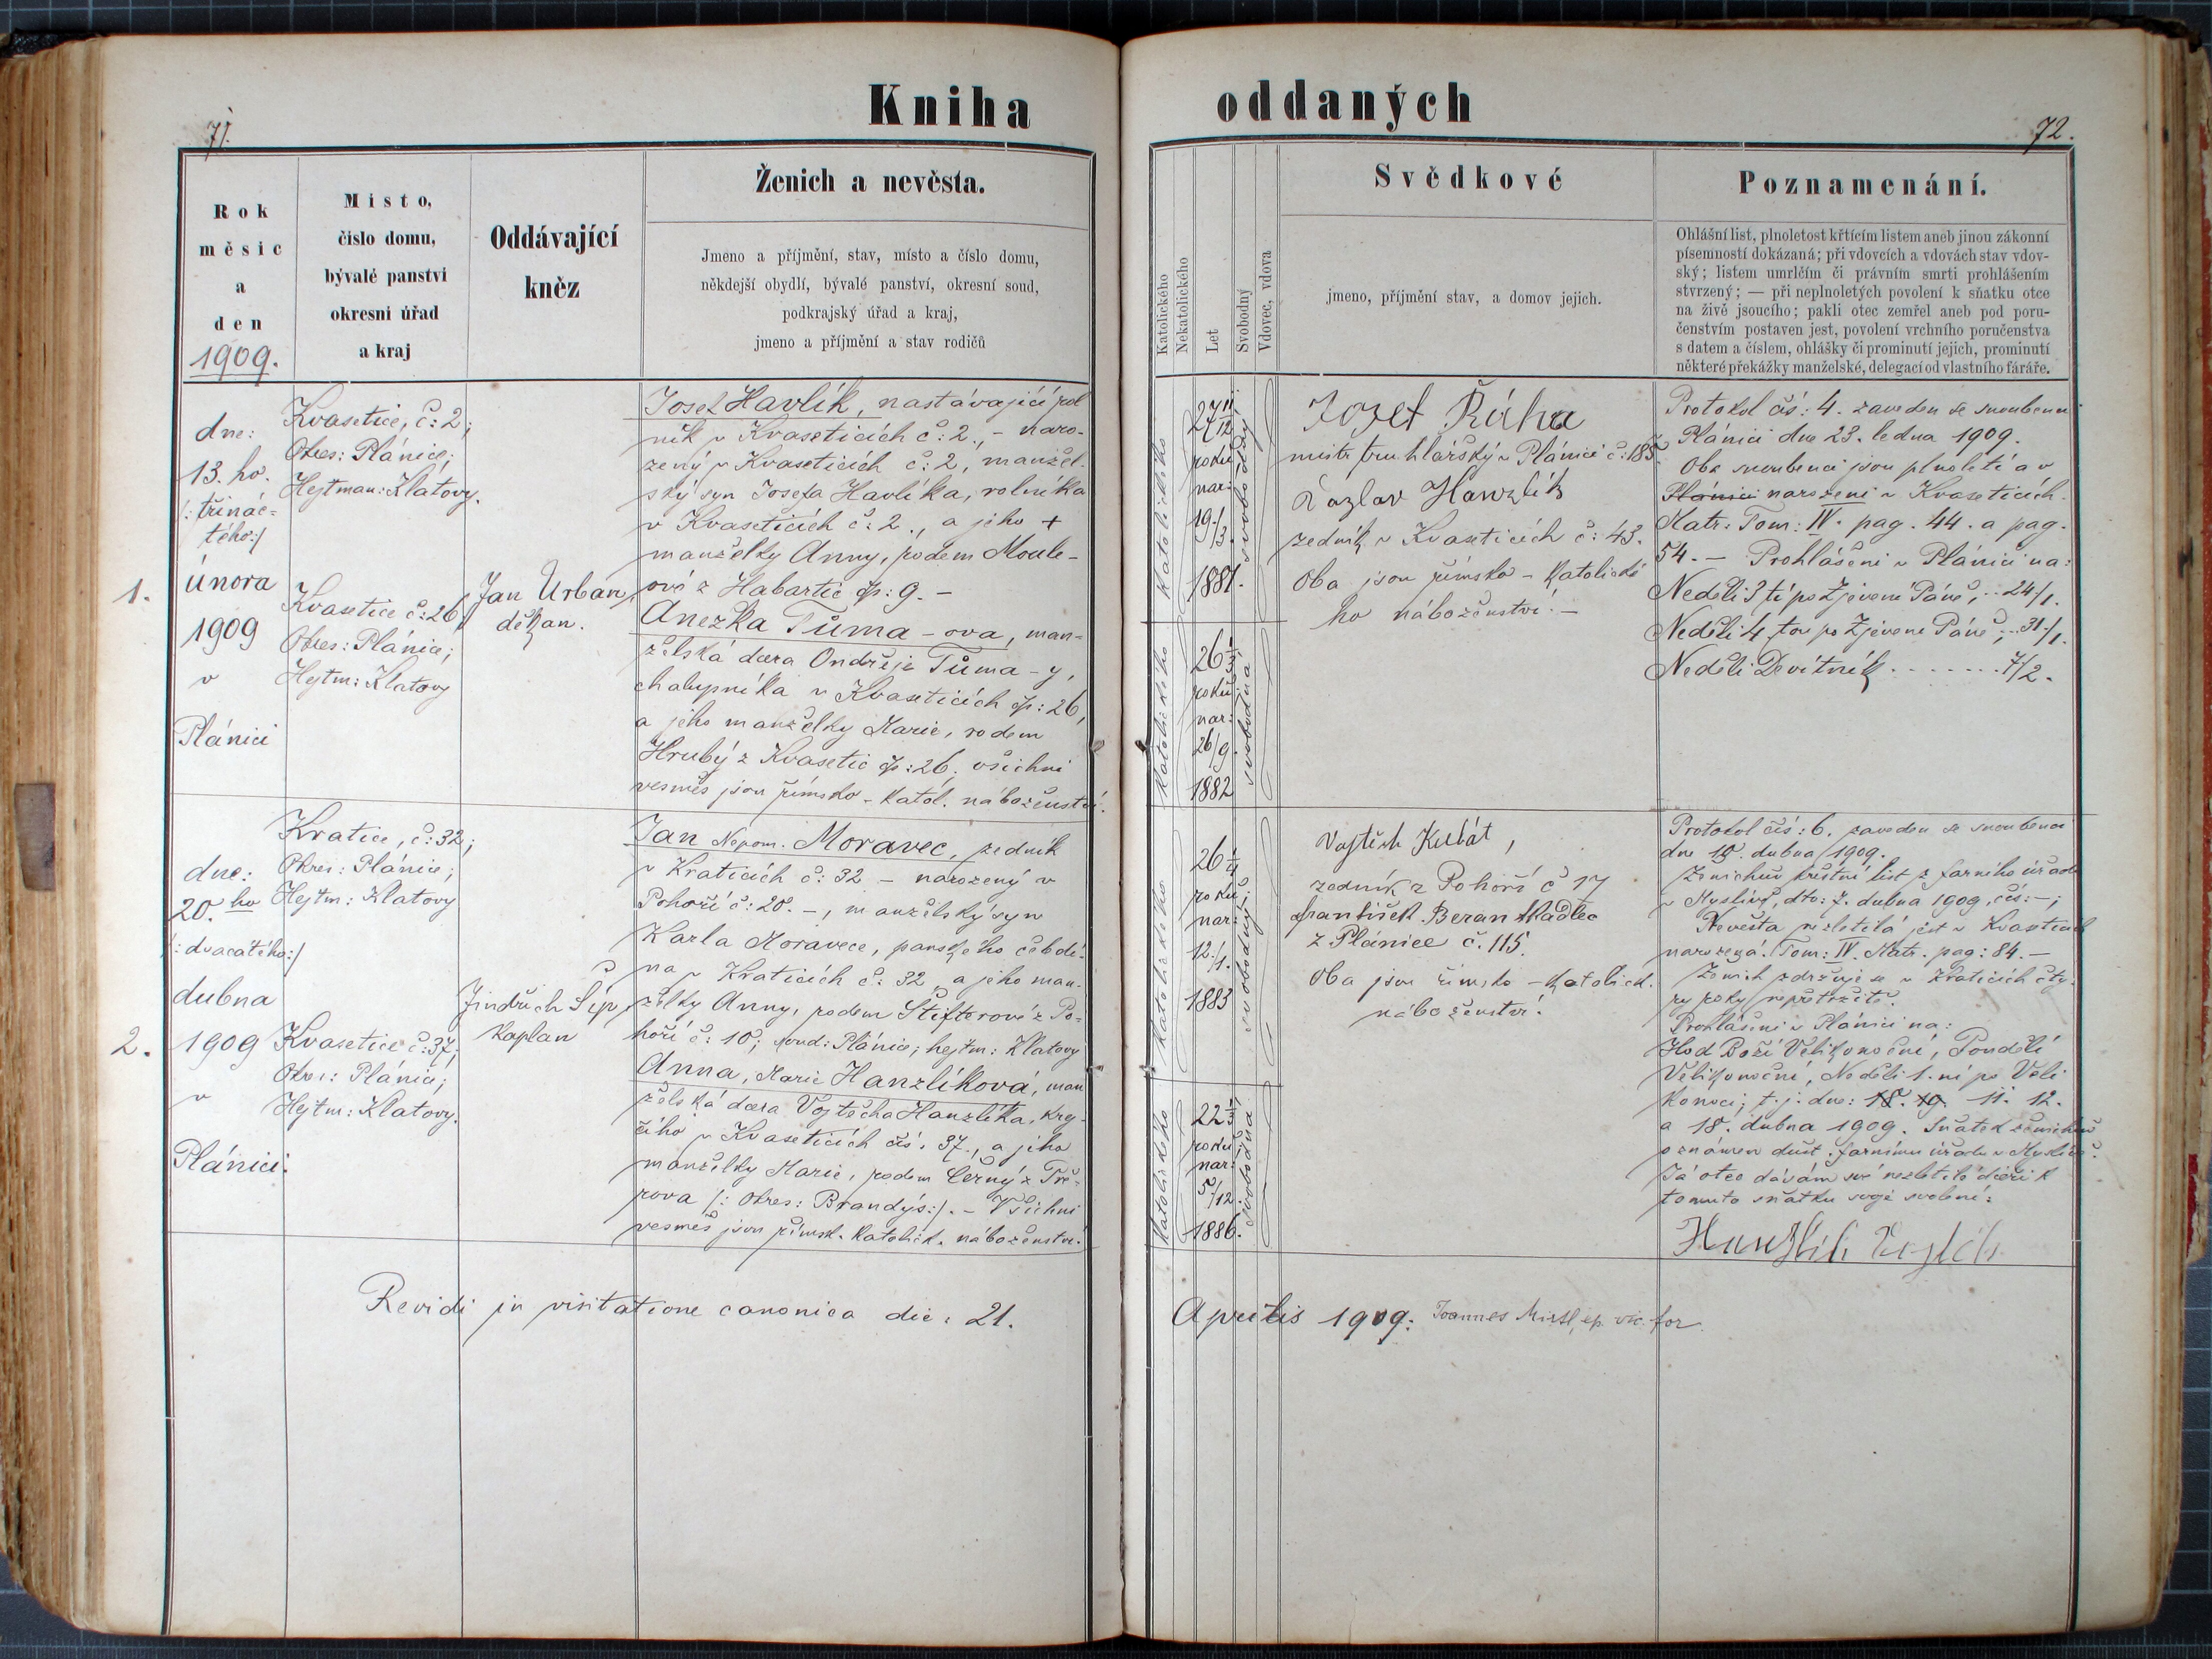 Kniha oddaných
71.
72.
Rok
měsíc
a
den
1909.
Místo,
číslo domu,
bývalé panství
okresní úřad
a kraj
Oddávající
kněz
Ženich a nevěsta.
Jmeno a příjmění, stav, místo a číslo domu,
někdejší obydlí, bývalé panství, okresní soud,
podkrajský úřad a kraj,
jmeno a příjmění a stav rodičů
Katolického
Nekatolického
Let
Svobodný
Vdovec, vdova
Svědkové
jmeno, příjmění stav, a domov jejich.
Poznamenání.
Ohlášní list, plnoletost křtícím listem aneb jinou zákonní
písemností dokázaná; při vdovcích a vdovách stav vdov-
ský; listem umrlčím či právním smrti prohlášením
stvrzený; — při neplnoletých povolení k sňatku otce
na živě jsoucího; pakli otec zemřel aneb pod poru-
čenstvím postaven jest, povolení vrchního poručenstva
s datem a číslem, ohlášky či prominutí jejich, prominutí
některé překážky manželské, delegací od vlastního faráře.
1.
dne:
13. ho.
/: třinác=
tého:/
února
1909
v
Plánici
Kvasetice, č: 2;
Okres: Plánice;
Hejtman: Klatovy.
Kvasetice č: 26;
Okres: Plánice;
Hejtm: Klatovy
Jan Urban,
děkan.
Josef Havlík, nastávající rol
ník v Kvaseticích č: 2., - naro-
zený v Kvaseticích č: 2, manžel-
ský syn Josefa Havlíka, rolníka
v Kvaseticích č: 2., a jeho +
manželky Anny, rodem Moule-
ové z Habartic čp: 9. -
Anežka Tůma-ova, man-
želská dcera Ondřeje Tůma-y,
chalupníka v Kvaseticích čp: 26,
a jeho manželky Marie, rodem
Hrubý z Kvasetic čp: 26. všichni
vesměs jsou římsko-katol. náboženství.
katolického
27 11/12
roků
nar:
19/3.
1881.
svobodný
katolického
26 1/3
roků
nar:
26/9.
1882
svobodna
Jozef Řáha
mistr truhlářský v Plánici č: 185
Vázlav Hanzlík
zedník v Kvaseticích č: 43.
Oba jsou římsko-katolické
ho náboženství. -
Protokol čís: 4. zaveden se snoubenci
v Plánici dne 23. ledna 1909.
Oba snoubenci jsou plnoletí a v
Plánici narozeni v Kvaseticích.
Matr: Tom: IV. pag. 44. a pag.
54. - Prohlášeni v Plánici na:
Neděli 3 tí po Zjevení Páně, .. 24/1.
Neděli 4 tou po Zjevení Páně, .. 31/1.
Neděli Devítník . . . . . . . 7/2.
2.
dne:
20. ho
/: dvacátého:/
dubna
1909
v
Plánici.
Kratice, č: 32;
Okres: Plánice;
Hejtm: Klatovy
Kvasetice č: 37;
Okres: Plánice;
Hejtm: Klatovy.
Jindřich Šíp,
kaplan
Jan Nepom. Moravec, zedník
v Kraticích č: 32 - narozený v
Pohoří č: 20. -, manželský syn
Karla Moravce, panského čeledí-
na v Kraticích č: 32, a jeho man-
želky Anny, rodem Štifterové z Po-
hoří č: 10; soud: Plánice; hejtm: Klatovy
Anna, Marie Hanzlíková, man
želská dcera Vojtěcha Hanzlíka, krej-
čího v Kvaseticích čís: 37., a jeho
manželky Marie, rodem Černý z
/: Okres: Brandýs:/. - Všichni
vesměs jsou římsk. katolick. náboženství.
katolického
26 1/4
roků
nar:
12/1.
1883
svobodný
katolického
22 1/3
roků
nar:
5/12
1886.
svobodna
Vojtěch Kubát,
zedník z Pohoří č 17
František Beran tkadlec
z Plánice č. 115.
Oba jsou římsko-katolick.
náboženství.
Protokol čís: 6. zaveden se snoubenci
dne 10. dubna 1909.
Ženichův křestní list z farního úřadu
v Myslívě, dto: 7. dubna 1909, čís: -;
Nevěsta nezletilá jest v Kvaseticích
narozená. Tom: IV. Matr. pag: 84. -
Ženich zdržuje se v Kraticích čty-
ry roky nepřetržitě.
Prohlášeni v Plánici na:
Hod Boží Velikonoční, Pondělí
Velikonoční, Neděli 1. ní po Veli
konoci; t. j. dne: 18. 19. 11. 12.
a 18. dubna 1909. Sňatek ženichův
oznámen důst. farnímu úřadu v Myslívě.
Já otec dávám své nezletilé dceři k
tomuto sňatku svoje svolení:
Hanzlík Vojtěch
Revidi in visitatione canonica die: 21. Aprilis 1909: Joannes ep. vic. for.